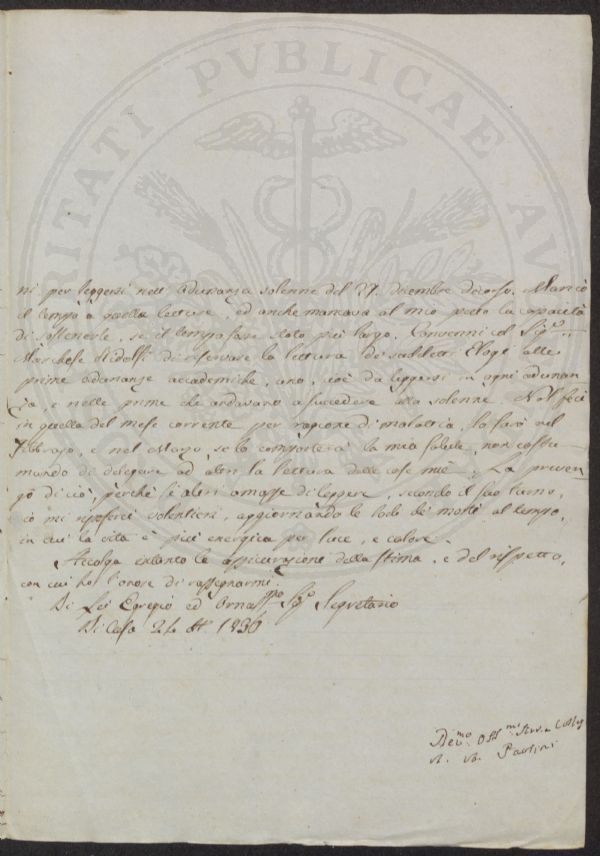 PROSPERITATI PVBLICAE AVGENDAE
ni per leggersi nell' adunanza solenne del 27. dicembre decorso. Mancò
il tempo a quella lettura, ed anche mancava al mio petto la capacità
di sostenerla, se il tempo fosse stato più largo. Convenni col Sig.e
Marchese Ridolfi di riservare la lettura de' suddetti Elogi alle
prime adunanze accademiche, uno, cioè da leggersi in ogni adunan
za, e nelle prime che andavano a succedere alla solenne. Nol feci
in quella del mese corrente per ragione di malattia, lo farò nel
Febbrajo, e nel Marzo, se lo comporterà la mia salute, non costu
mando di delegare ad altri la lettura delle cose mie. La preven
go di ciò, perchè se altri amasse di leggere, secondo il suo turno,
io mi riposerei volentieri, aggiornando le lodi de' morti al tempo,
in cui la vita è più energica per luce, e calore.
Accolga intanto le assicurazioni della stima, e del rispetto,
con cui ho l'onore di rassegnarmi.
Di Lei Egregio ed Ornatss.mo Sig.e Segretario
Di Casa 24 1836
Dev.mo Obb.mo Serv.e Collega
Paolini